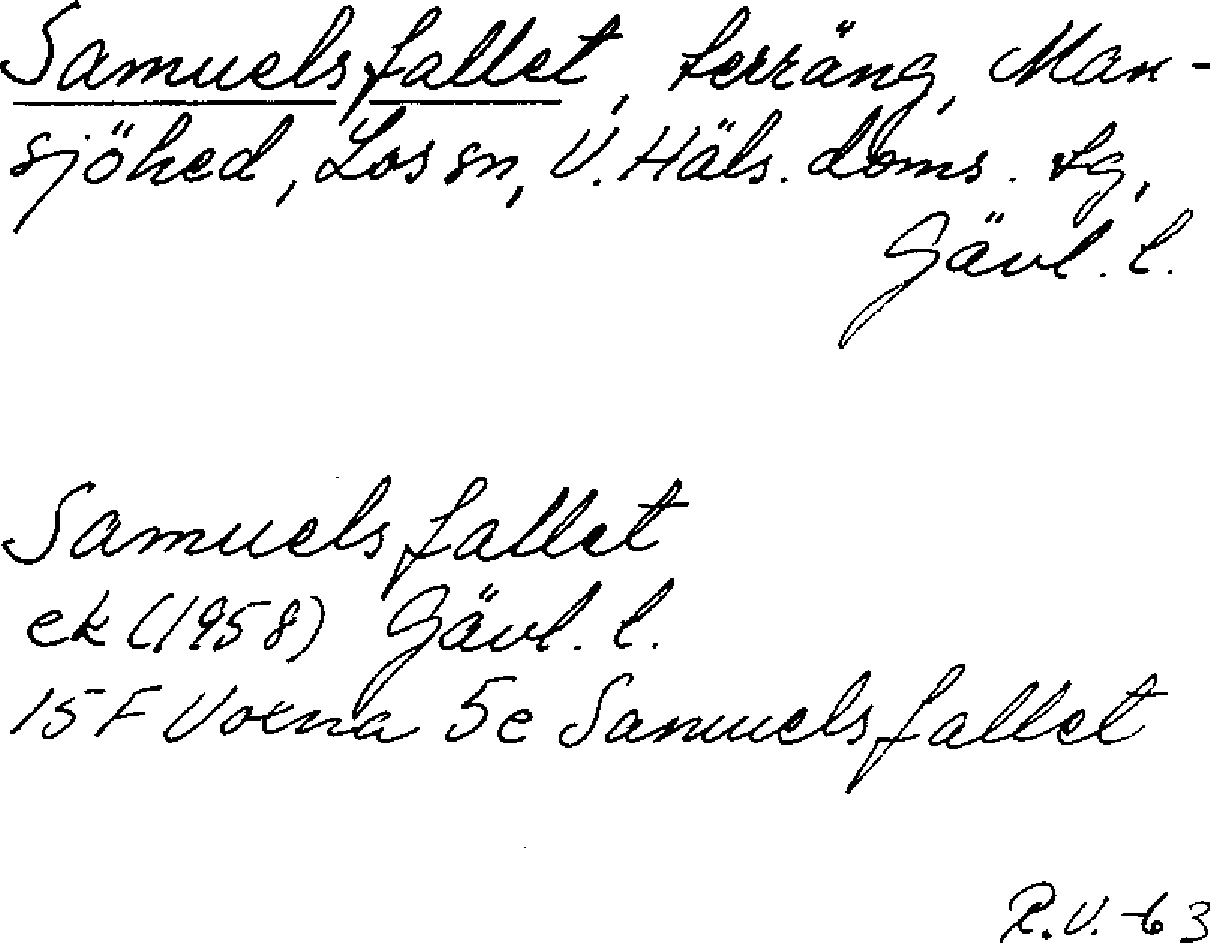 Samuelsfallet, terräng, Man-
sjöhed, Los sn, V. Häls. doms. tg,
Gävl. l.
Samuelsfallet
ek (1958) Gävl. l.
15 F Voxna 5e Samuelsfallet
R.V. -63